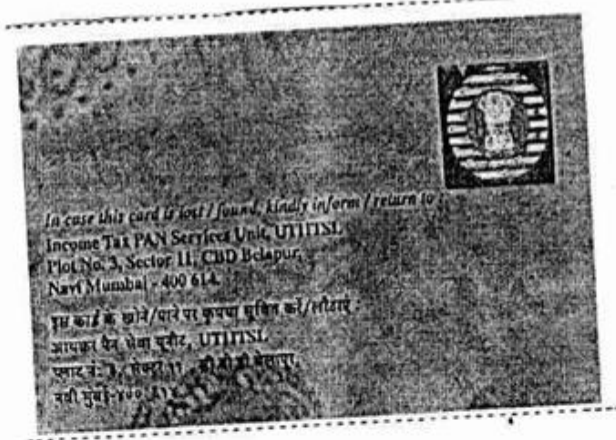 In case this card is lost / found, kindly inform / return to :
Income Tax PAN Services Unit, UTIITSL
Plot No. 3, Sector 11, CBD Belapur,
Navi Mumbai - 400 614.
इस कार्ड के खोने/पाने पर कृपया सूचित करें/लौटाएं :
आयकर पैन सेवा यूनीट, UTIITSL
प्लाट नं: ३, सेक्टर ११, सी.बी.डी.बेलापूर,
नवी मुंबई-४०० ६१४